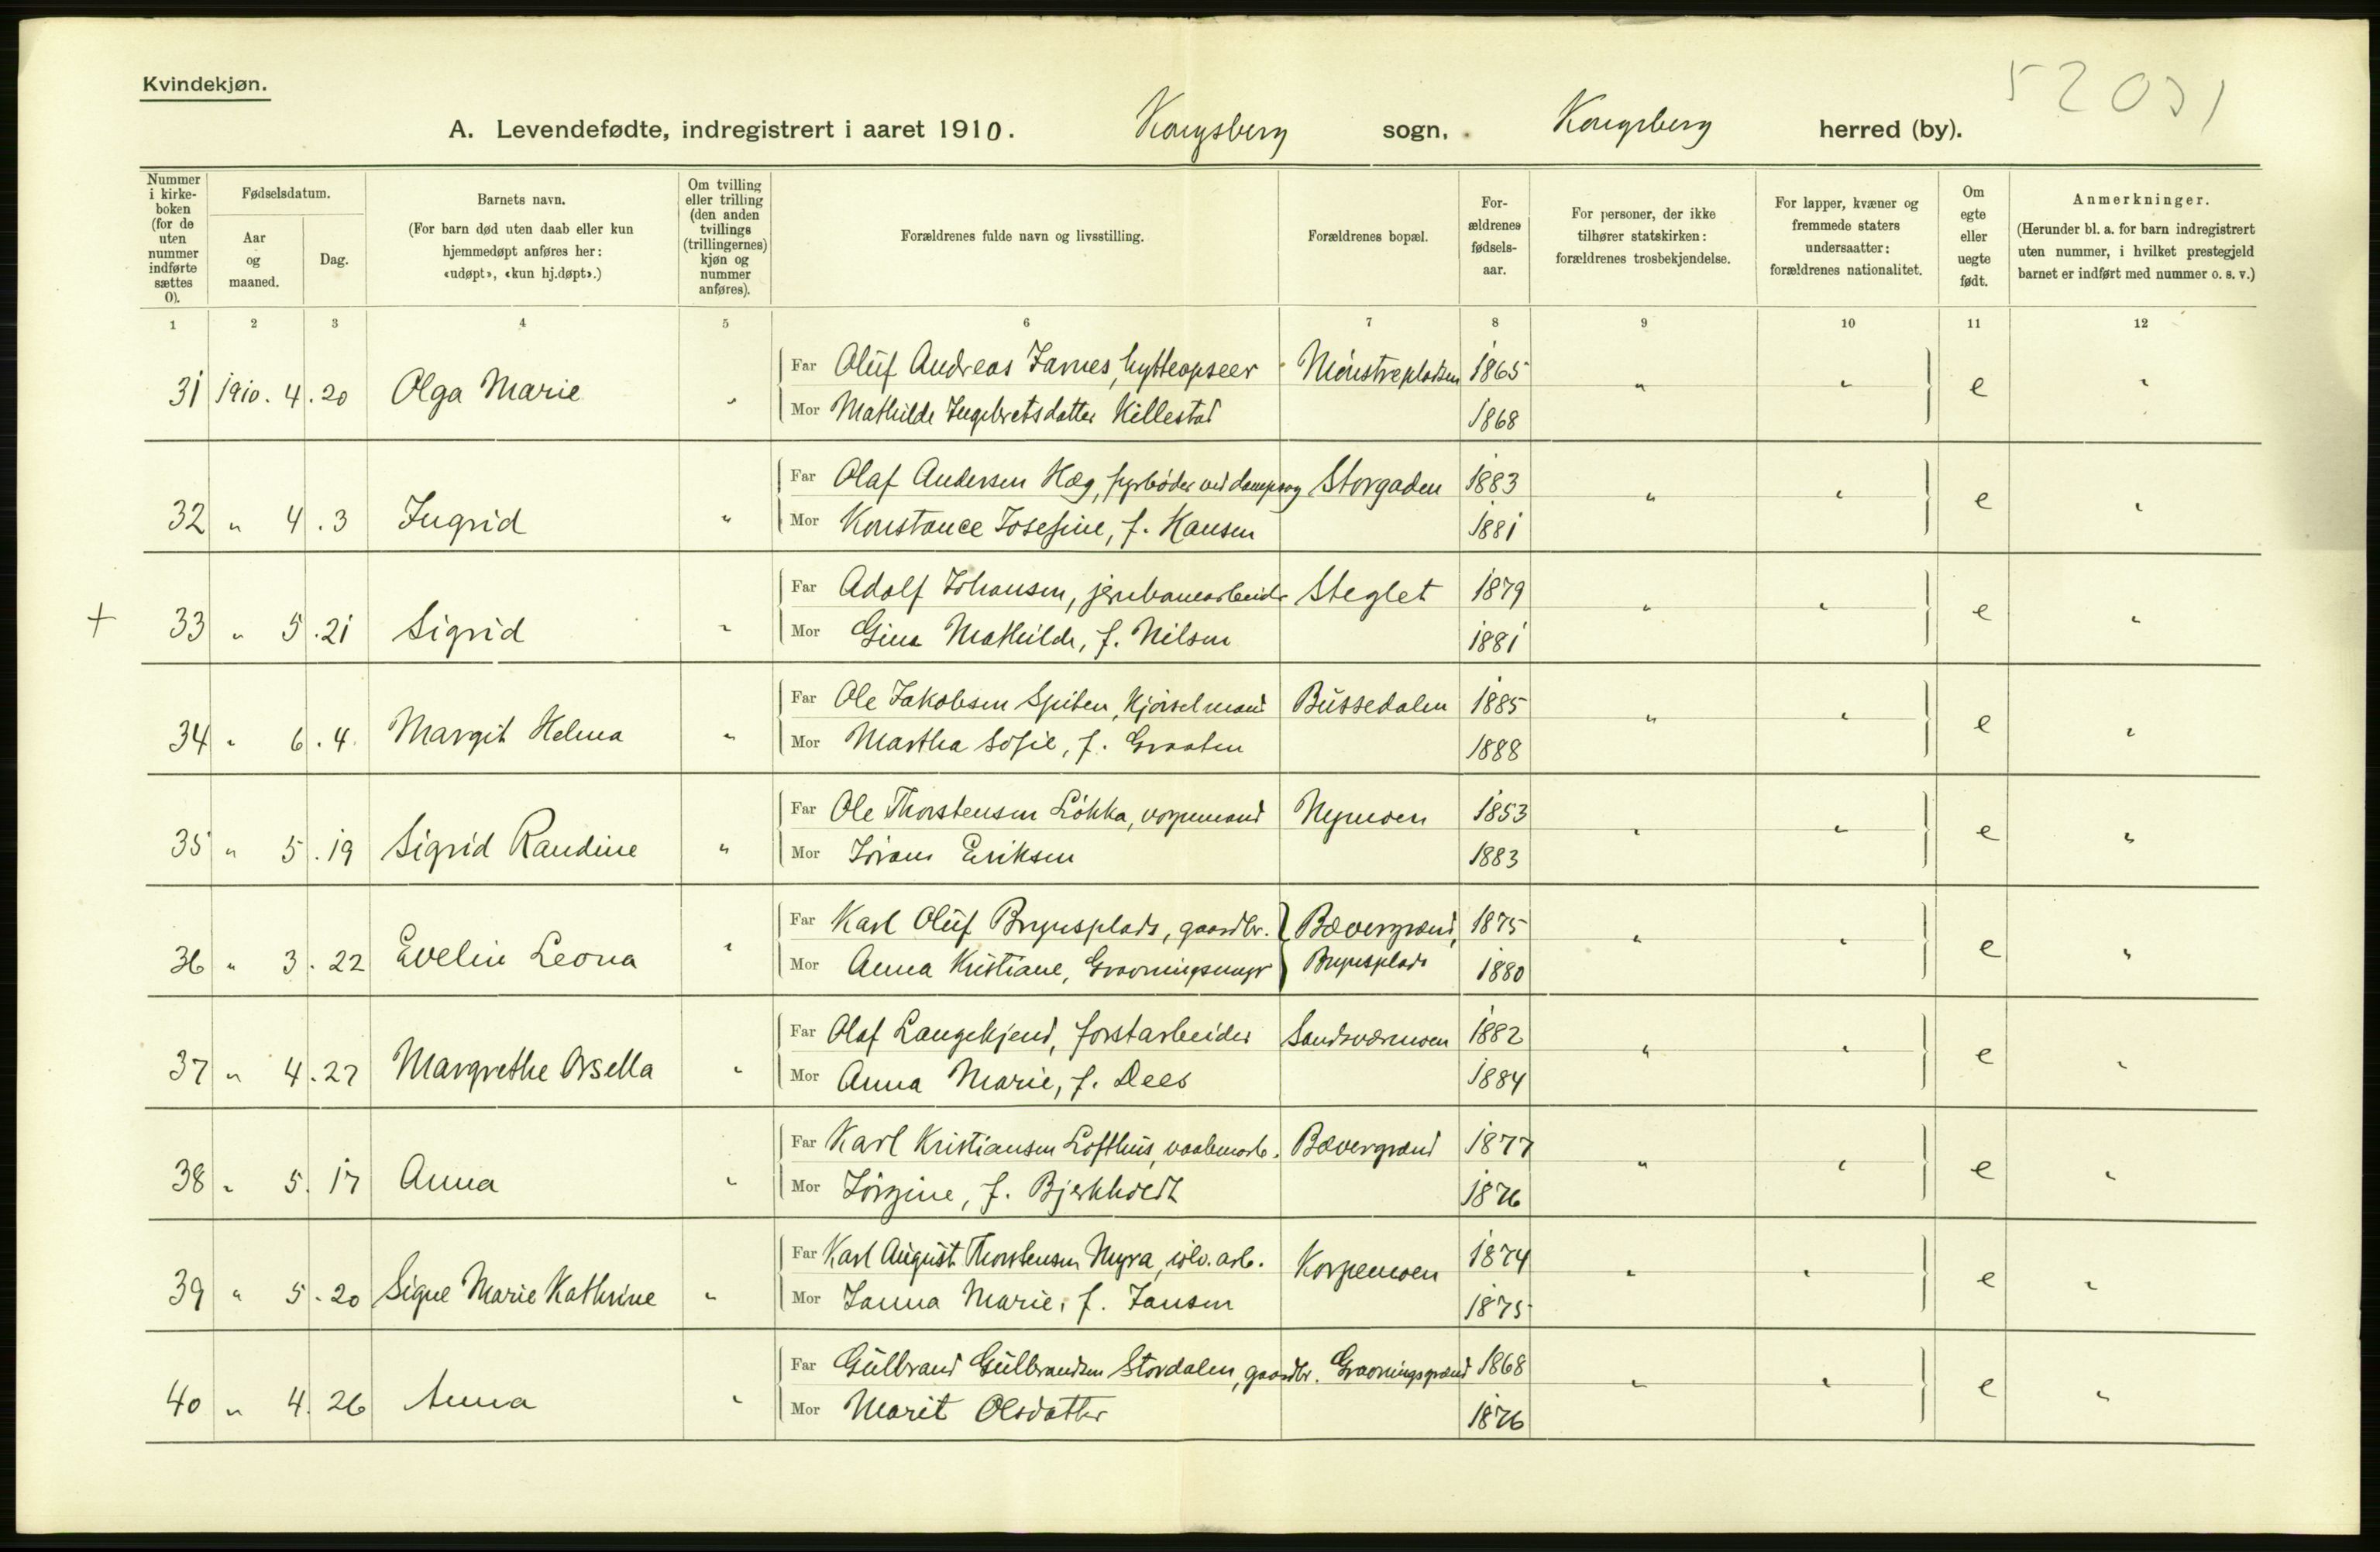 Kvindekjøn.
52031
A. Levendefødte, indregistrert i aaret 1910. Kongsberg sogn, Kongsberg herred (by).
Nummer i kirke-boken (for de uten nummer indførte sættes 0).
Fødselsdatum.
Aar og maaned.
Dag.
Barnets navn.
(For barn død uten daab eller kun hjemmedøpt anføres her: «udøpt», «kun hj.døpt».)
Om tvilling eller trilling (den anden tvillings (trillingernes) kjøn og nummer anføres).
Forældrenes fulde navn og livsstilling.
Forældrenes bopæl.
For-ældrenes fødsels-aar.
For personer, der ikke tilhører statskirken: forældrenes trosbekjendelse.
For lapper, kvæner og fremmede staters undersaatter: forældrenes nationalitet.
Om egte eller uegte født.
Anmerkninger.
(Herunder bl. a. for barn indregistrert uten nummer, i hvilket prestegjeld barnet er indført med nummer o. s. v.)
1 2 3 4 5 6 7 8 9 10 11 12
Far Oluf Andreas James, hytteopseer Mønstrepladsen 1865
31 1910. 4. 20 Olga Marie " " " e "
Mor Mathilde Ingebretsdatter Killestad 1868
Far Olaf Andersen Hæg, fyrbøder ved dampsag Storgaden 1883
32 " 4. 3 Ingrid " " " e "
Mor Konstance Josefine, f. Hansen 1881
Far Adolf Johansen, jernbanearbeider Steglet 1879
+ 33 " 5. 21 Sigrid " " " e "
Mor Gina Mathilde, f. Nilsen 1881
Far Ole Jakobsen Spiten, kjørselmand Bussedalen 1885
34 " 6. 4. Margit Helma " " " e "
Mor Martha Sofie, f. Graaten 1888
Far Ole Thorstensen Løkka, vognmand Nymoen 1853
35 " 5. 19 Sigrid Randine " " " e "
Mor Jørans Eriksen 1883
Far Karl Oluf Brynsplads, gaardbr. Bævergrend, 1875
36 " 3. 22 Evelin Leona " " " e "
Mor Anna Kristiane, Gravningsmyr Brynsplads 1880
Far Olaf Langekjend, forstarbeider Sandsværmoen 1882
37 " 4. 27 Margrethe Orsella " " " e "
Mor Anna Marie, f. Dees 1884
Far Karl Kristiansen Lofthus, vaabenarb. Bævergrend 1877
38 " 5. 17 Anna " " " e "
Mor Jørgine, f. Bjerkholdt 1876
Far Karl August Thorstensen Myra, sølv. arb. Korpemoen 1874
39 " 5. 20 Signe Marie Kathrine " " " e "
Mor Janna Marie, f. Jansen 1875
Far Gulbrand Gulbrandsen Stordalen, gaardbr. Gravningsgrend 1868
40 " 4. 26 Anna " " " e "
Mor Marit Olsdatter 1876